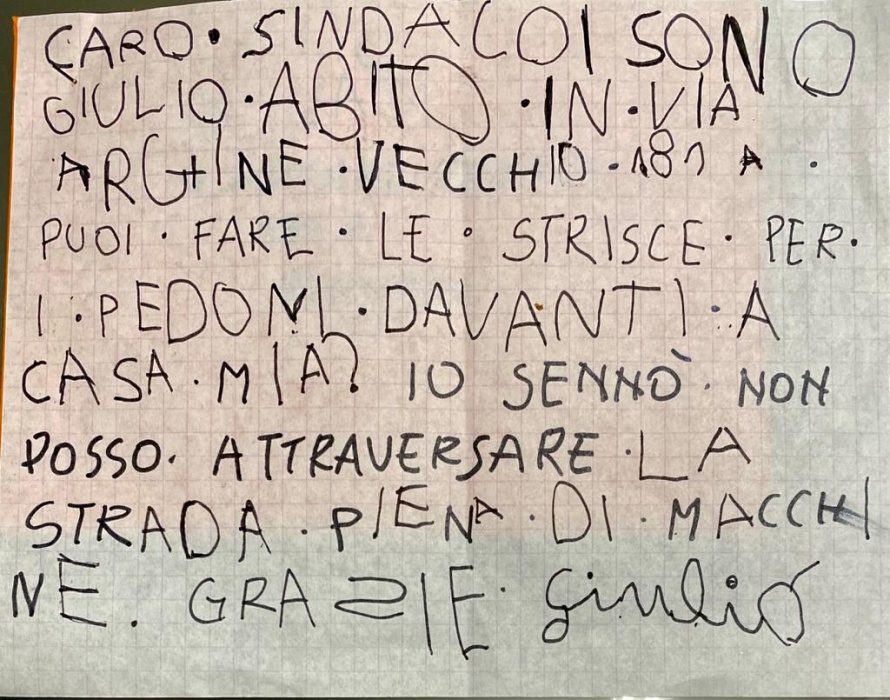 CARO · SINDACO I SONO
GIULIO · ABITO · IN · VIA
ARGINE · VECCHIO · 181 A ·
PUOI · FARE · LE · STRISCE · PER ·
I · PEDONI · DAVANTI · A
CASA · MIA? IO SENNÒ · NON
POSSO · ATTRAVERSARE · LA
STRADA · PIENA · DI · MACCHI
NE. GRAZIE · Giulio